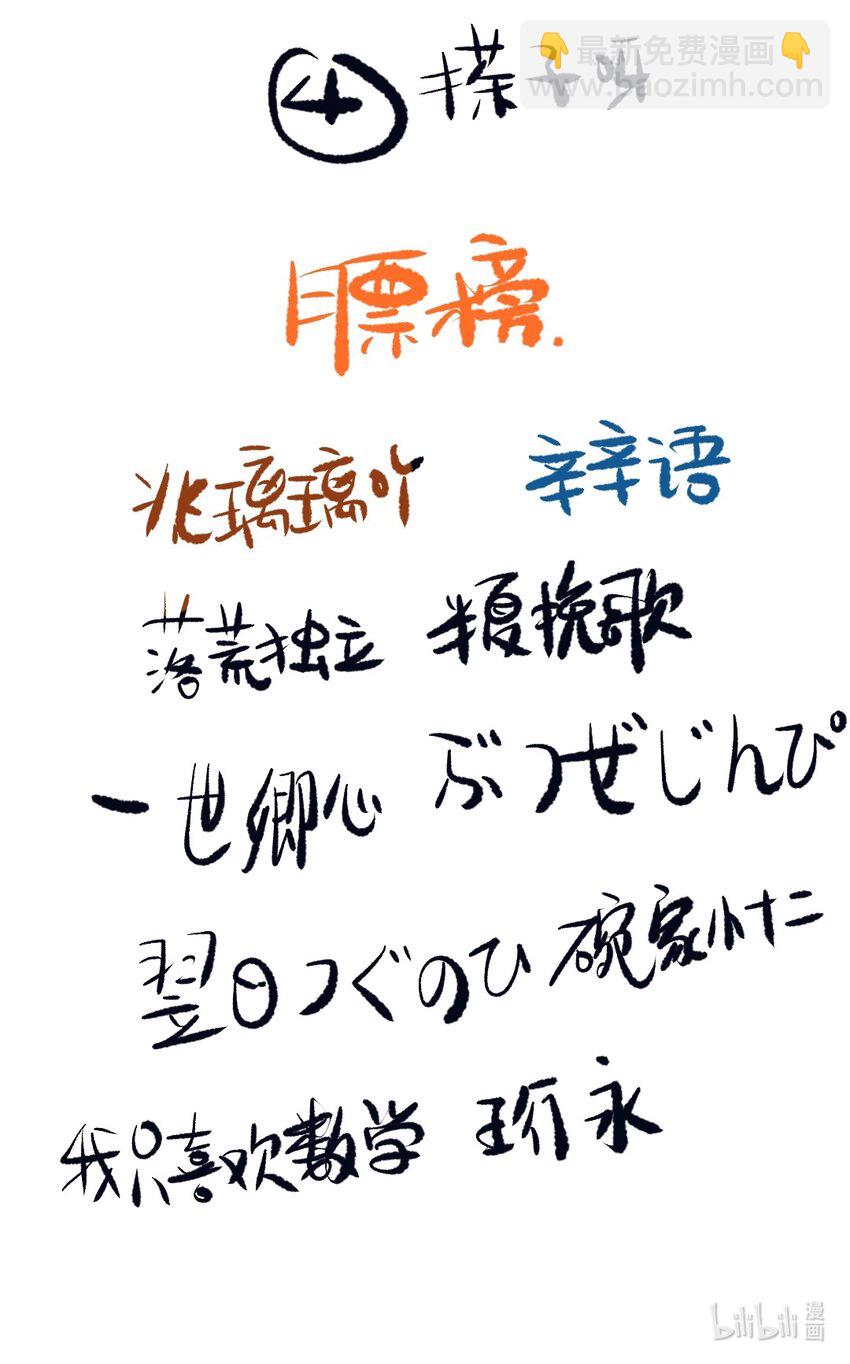 ④ 搽子叫
👇最新免费漫画👇
www.baozimh.com
膘榜.
兆璃璃吖 辛辛语
落荒独立 半夏挽歌
一世卿心 ぶつぜじんぴ
翌日つぐのひ 碗家小十二
我只喜欢数学 玠永
bilibili漫画